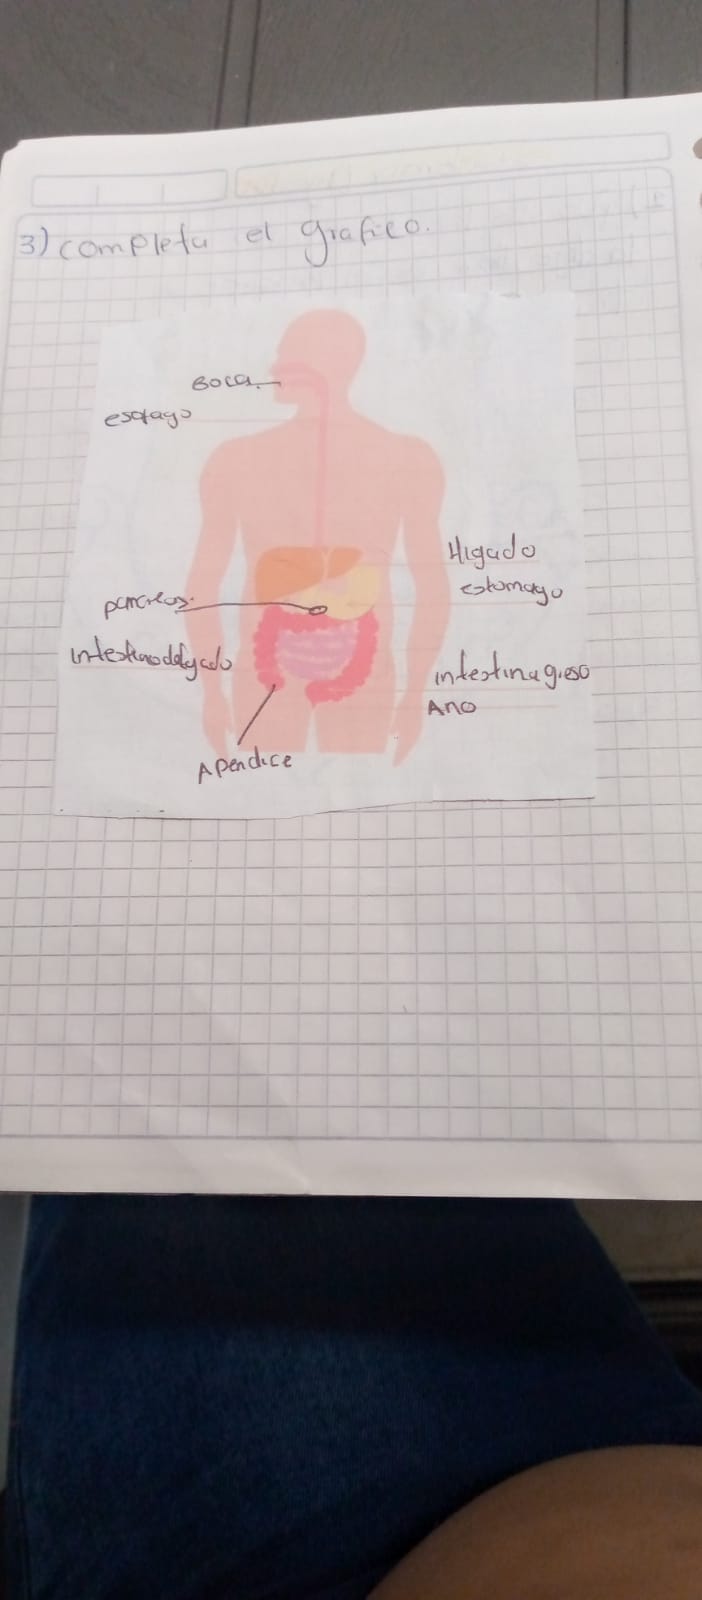 3) completa el grafico.
Boca
esofago
Higado
estomago
pancreas.
intestino delgado
intestina greso
Ano
Apendice